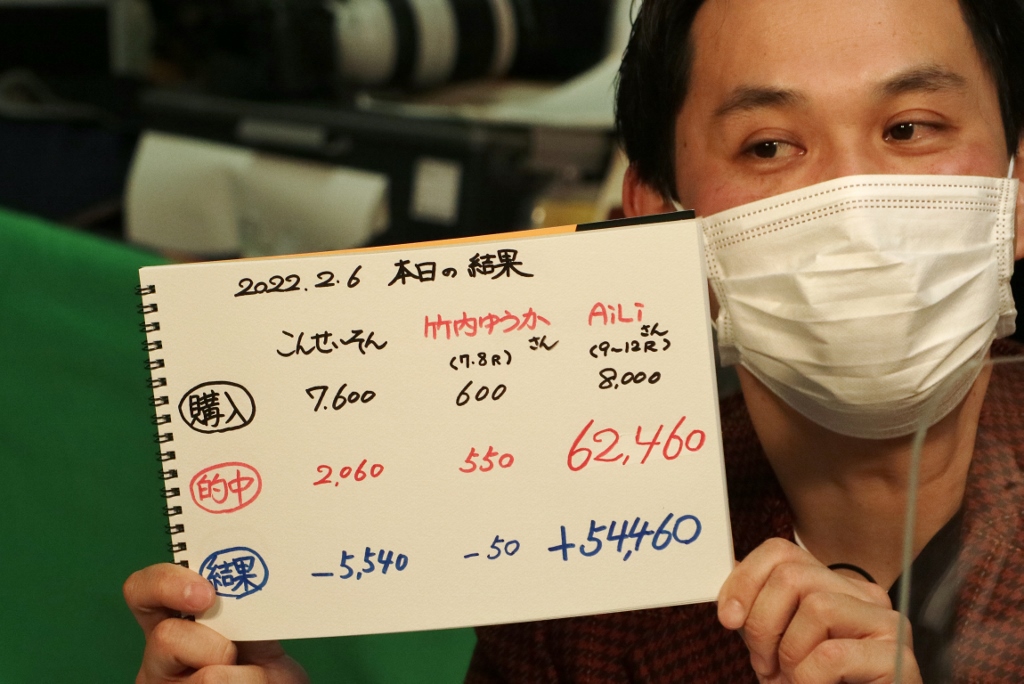 2022.2.6 本日の結果
こんせいそん 竹内ゆうかさん AiLiさん
(7.8R) (9~12R)
購入 7.600 600 8,000
的中 2,060 550 62,460
結果 -5,540 -50 +54,460